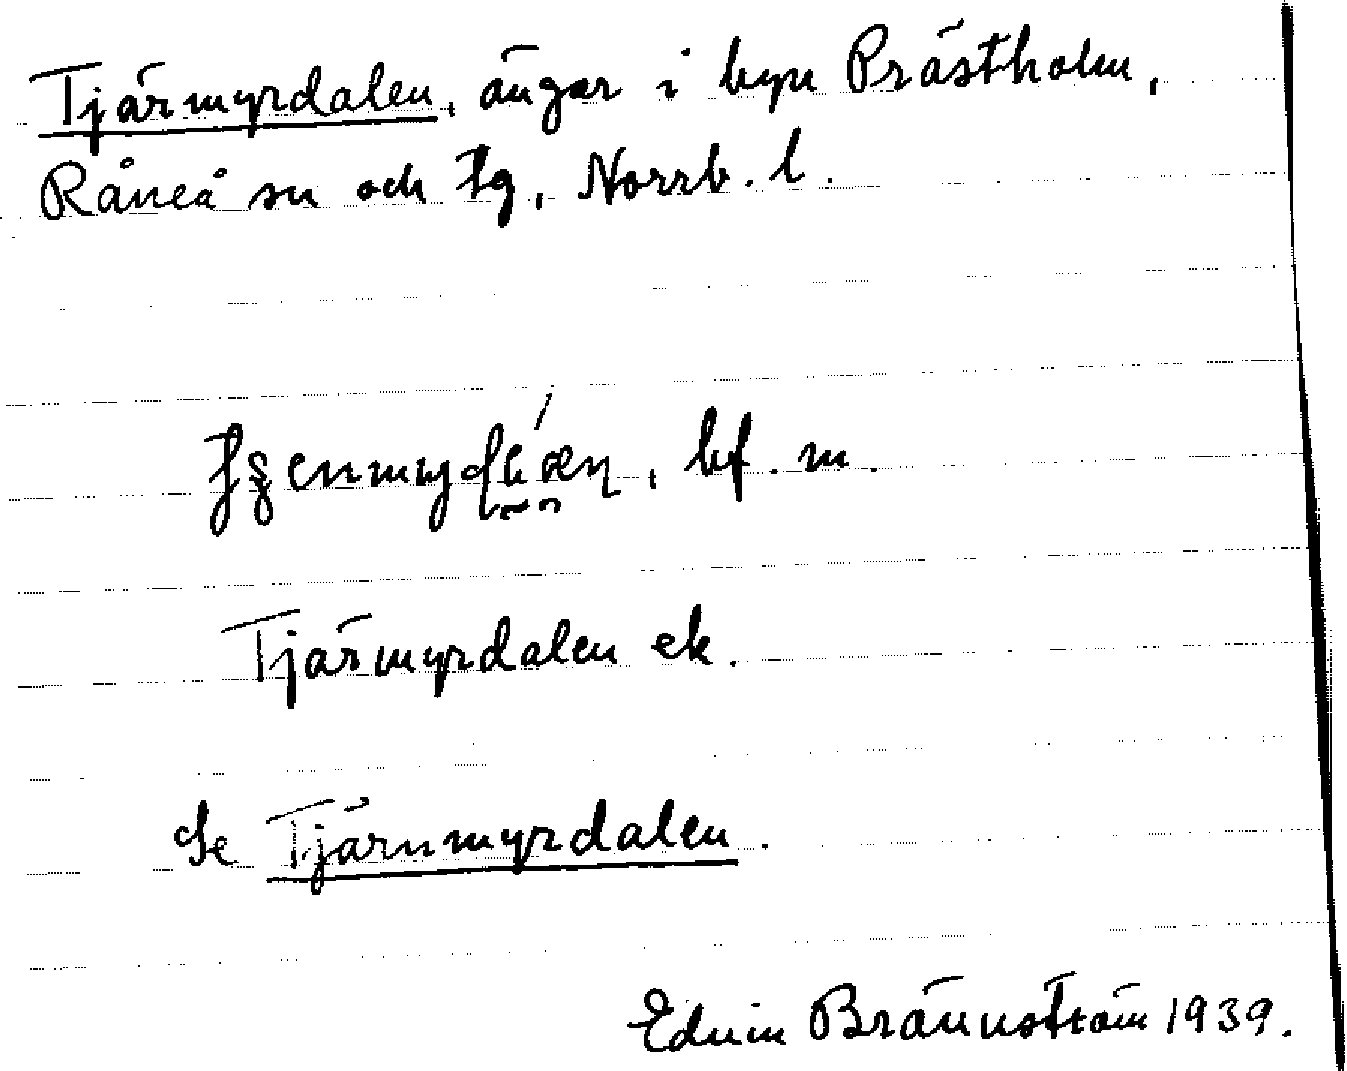 Tjärmyrdalen, ängar i byn Prästholm,
Råneå sn och tg, Norrb. l.
bf. m.
Tjärmyrdalen ek.
Se Tjärnmyrdalen.
Edvin Brännström 1939.